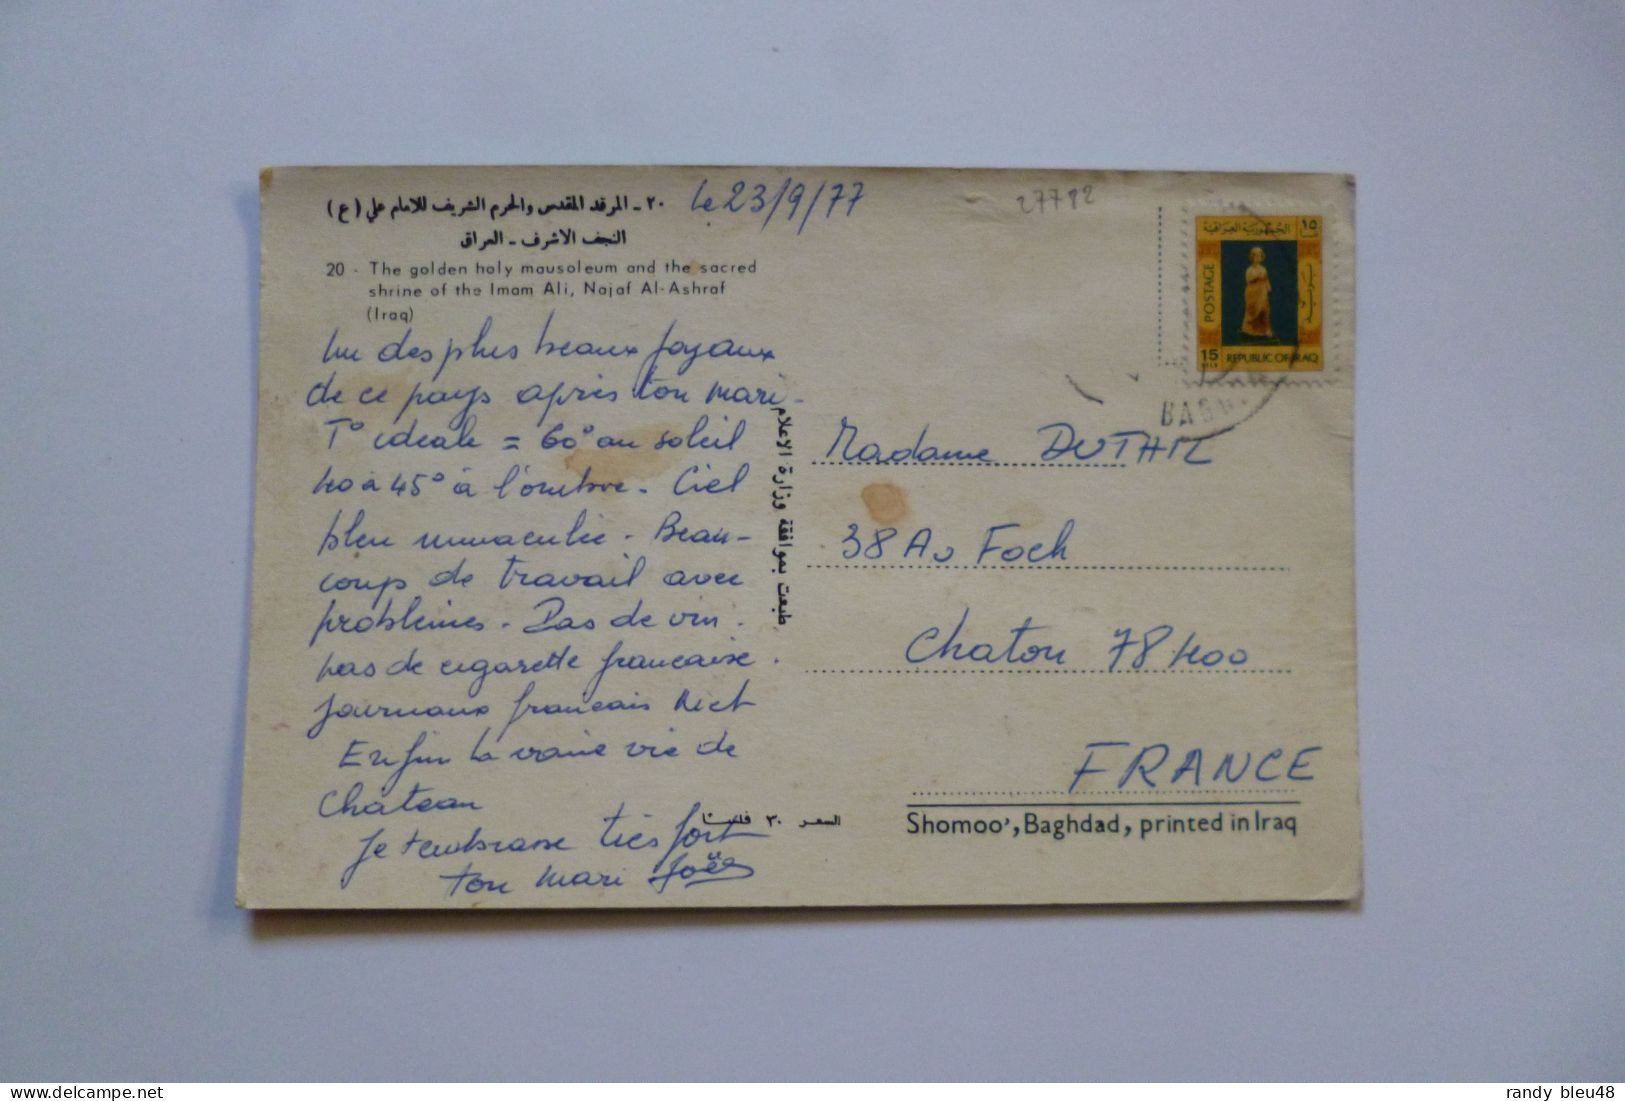 ٢٠ - المرقد المقدس والحرم الشريف للامام علي (ع)
النجف الاشرف - العراق
20 - The golden holy mausoleum and the sacred
shrine of the Imam Ali, Najaf Al-Ashraf
(Iraq)
le 23/9/77
27782
Un des plus beaux joyaux
de ce pays après ton mari.
T° idéale = 60° au soleil
40 à 45° à l'ombre. Ciel
bleu immaculée. Beau-
coup de travail avec
problèmes. Pas de vin.
pas de cigarette francaise.
journaux francais
Enfin la vraie vie de
Château
Je t'embrasse très fort
ton mari Joël
طبعت بموافقة وزارة الاعلام
السعر ٣٠ فلسا
الجمهورية العراقية ١٥
POSTAGE
15
REPUBLIC OF IRAQ
BAGH
Madame DUTHIL
38 Av Foch
Chatou 78400
FRANCE
Shomoo', Baghdad, printed in Iraq
randy bleu48